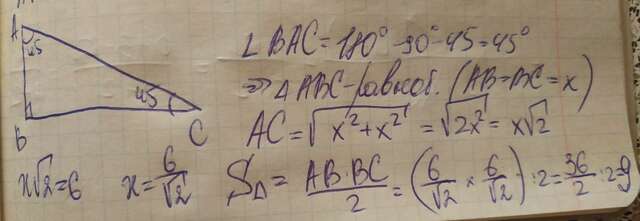 A
45
45
B
C
∠BAC = 180° - 90° - 45 = 45°
=> △ABC - равноб. (AB=BC=x)
AC = √(x²+x²) = √(2x²) = x√2
x√2 = 6    x = 6/√2    S△ = AB·BC/2 = (6/√2 × 6/√2) : 2 = 36/2 : 2 = 9